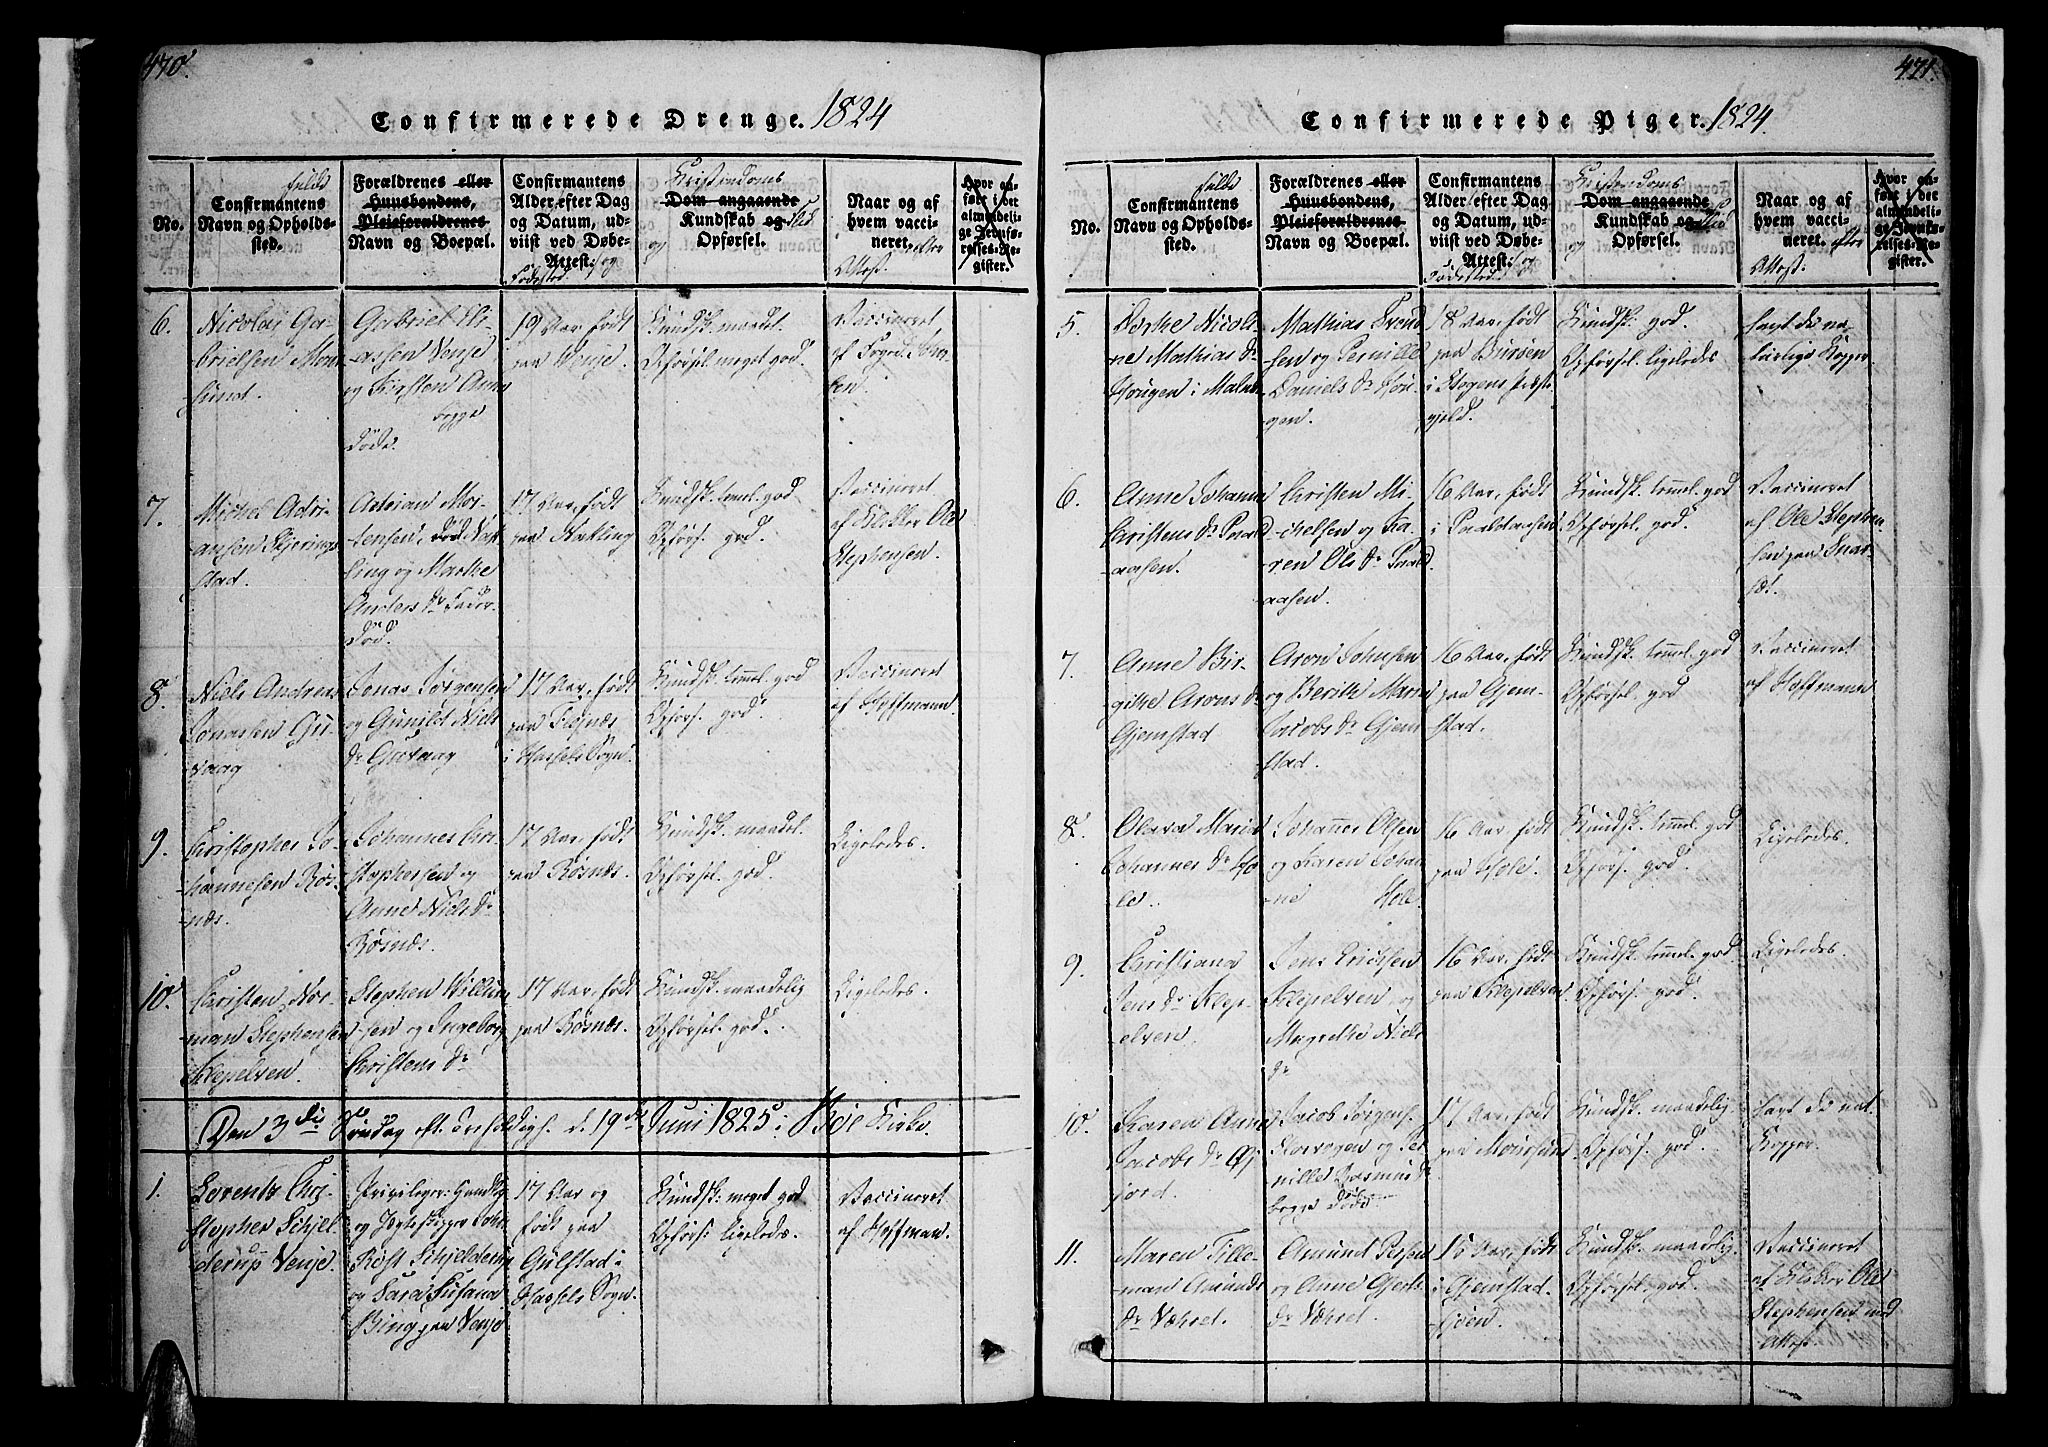 470.
Confirmerede Drenge. 1824
No.
Confirmantens fulde
Navn og Opholds-
sted.
Forældrenes eller
Huusbondens,
Pleieforældrenes
Navn og Boepæl.
Confirmantens
Alder, efter Dag
og Datum, ud-
viist ved Døbe-
Attest: og
Fødested.
Christendoms
Dom angaaende
Kundskab og Flid
og Opførsel.
Naar og af
hvem vacci-
neret. efter
Attest.
Hvor an-
ført i det
almindeli-
ge Jevnfø-
relses-Re-
gister.
6.
Nicolai Ga-
brielsen
sund.
Gabriel Eli-
assen Venje
og Kirsten Anna
begge
døde.
19 Aar, født
paa Venje.
Kundsk. maadel.
Opførsel meget god.
Vaccineret
af Foged
7.
Michel Adri-
ansen Skjerings
stad.
Adrian Mor-
tensen, død
og Marthe
Anders Dr Fader
død.
17 Aar, født
paa
Kundsk. temel. god
Opførs. god.
Vaccineret
af Klokker Ole
Stephensen.
8.
Niels Andreas
Jonassen Gu-
vaag
Jonas Jørgensen
og Gunild Niels
Dr Guvaag
17 Aar, født
paa
i Hassels Sogn.
Kundsk. temel. god
Opførs. god.
Vaccineret
af Hoffmann.
9.
Christopher Jo-
hannesen Røs-
næs.
Johannes Chri-
stophersen og
Anne Niels Dr
Røsnæs.
17 Aar, født
paa Røsnæs.
Kundsk. maadel.
Opførsel god.
Ligeledes.
10.
Christen Nor-
man Stephensen
Klepelven.
Stephen Willum
sen og Ingeborg
Christens Dr
17 Aar, født
paa Røsnæs.
Kundsk. maadelig
Opførsel god.
Ligeledes.
Den 3die Søndag eft. Trefoldigh. d. 19de Juni 1825 i Bøe Kirke.
1.
Lorents Chri-
stopher Schiel
derup Venje.
Privilegeer. Handler
og Jægteskipper John
Røst Schjelderup
og Sara Susana
Bing paa Venje
17 Aar og
født paa
Gulstad i
Hassels Sogn.
Kundsk. meget god
Opførs: ligeledes.
Vaccineret
af Hoffman.
471.
Confirmerede Piger. 1824.
No.
Confirmantens fulde
Navn og Opholds-
sted.
Forældrenes eller
Huusbondens,
Pleieforældrenes
Navn og Boepæl.
Confirmantens
Alder, efter Dag
og Datum, ud-
viist ved Døbe-
Attest: og
Fødested.
Christendoms
Dom angaaende
Kundskab og Flid
og Opførsel.
Naar og af
hvem vacci-
neret. efter
Attest:
Hvor an-
ført i det
almindeli-
ge Jevnfø-
relses-Re-
gister.
5.
Dorthe Nicoli-
ne Mathias Dr
Hougen i Malnes
Mathias Trond
sen og Pernille
Daniels Dr Hou-
gen.
18 Aar, født
paa
i
gjeld.
Kundsk. god.
Opførsel ligeledes
havt de na-
turlige Kopper
6.
Anne Johanna
Christens Dr
aasen.
Christen Mi-
chelsen og Ka-
ren Ols Dr
aasen.
16 Aar, født
i
Kundsk. temel. god
Opførsel god.
Vaccineret
af Ole Stephen-
sen paa
7.
Anne Bir-
githe Arons Dr
Gjemstad
Aron Johnsen
og Berithe Maria
Jacobs Dr Gjem-
stad.
16 Aar, født
paa Gjem-
stad.
Kundsk. temel. god
Opførsel god
Vaccineret
af Hoffmann
8.
Olava Maria
Johannes Dr Ho-
le.
Johannes Olsen
og Karen Johan
ne Hole.
16 Aar, født
paa Hole.
Kundsk. temel. god
Opførs. god.
Ligeledes.
9.
Christiana
Jens Dr Klep-
elven.
Jens Erichsen
Klepelven, og
Magrethe Niels
Dr
16 Aar, født
paa Klepelven
Kundsk. temel. god.
Opførs. god.
Ligeledes
10.
Karen Anne
Jacobs Dr
jord.
Jacob Jørgens.
og Per
nille Rasmus Dr
begge døde.
17 Aar, født
paa
Kundsk. maadelig
Opførs. god.
havt de nat.
Kopper.
11.
Maren Tille-
man Amunds
Dr Vehret.
Amund
og Anne
Dr Vehret.
15 Aar, født
i Gjemstad-
Kundsk. maadelig.
Opførsel god.
Vaccineret
af Klokker Ole
Stephensen ved
Attest.